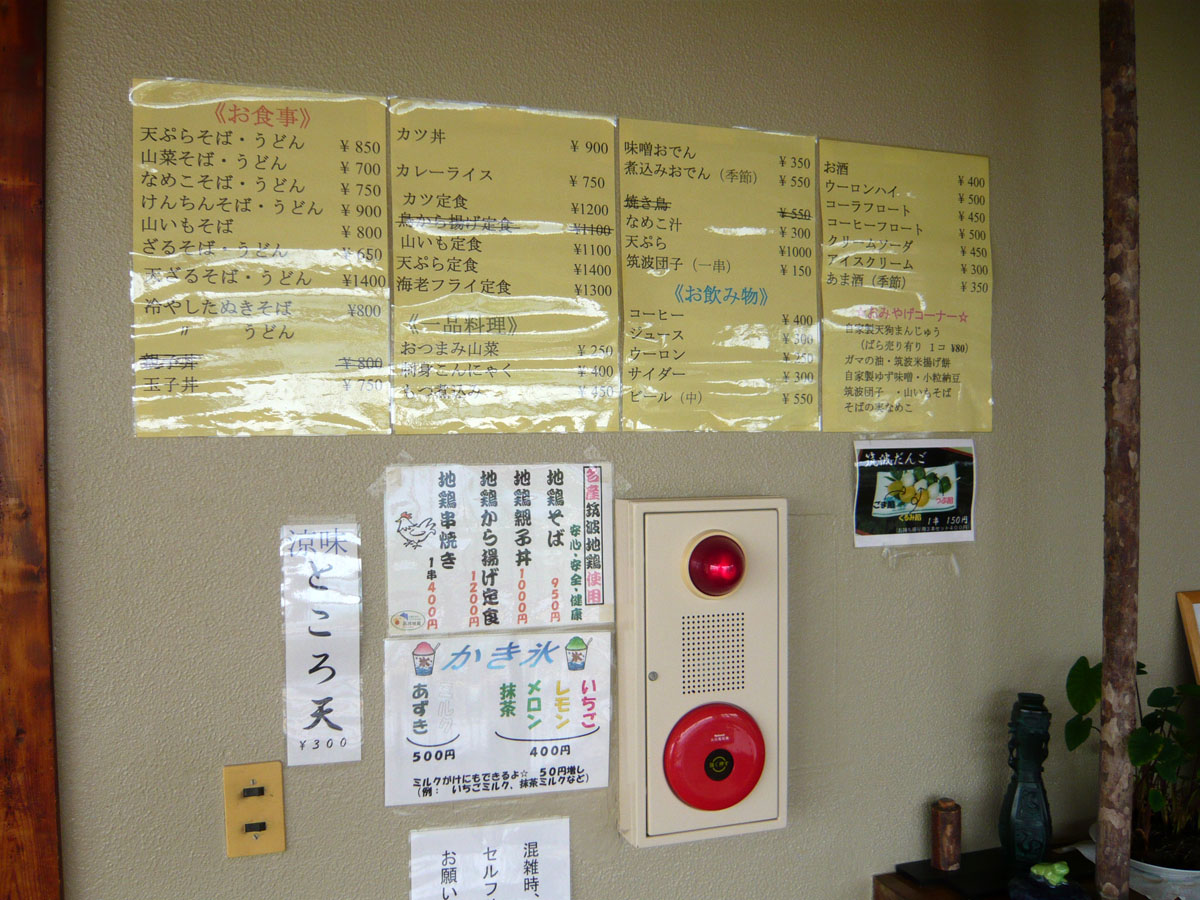 《お食事》
天ぷらそば・うどん ¥ 850
山菜そば・うどん ¥ 700
なめこそば・うどん ¥ 750
けんちんそば・うどん ¥ 900
山いもそば ¥ 800
ざるそば・うどん ¥ 650
天ざるそば・うどん ¥1400
冷やしたぬきそば ¥800
〃 うどん
親子丼 ¥ 800
玉子丼 ¥ 750
カツ丼 ¥ 900
カレーライス ¥ 750
カツ定食 ¥1200
鳥から揚げ定食 ¥1100
山いも定食 ¥1100
天ぷら定食 ¥1400
海老フライ定食 ¥1300
《一品料理》
おつまみ山菜 ¥ 250
刺身こんにゃく ¥ 400
もつ煮込み ¥ 450
味噌おでん ¥ 350
煮込みおでん（季節） ¥ 550
焼き鳥 ¥ 550
なめこ汁 ¥ 300
天ぷら ¥1000
筑波団子（一串） ¥ 150
《お飲み物》
コーヒー ¥ 400
ジュース ¥ 300
ウーロン
サイダー ¥ 300
ビール（中） ¥ 550
お酒 ¥ 400
ウーロンハイ ¥ 500
コーラフロート ¥ 450
コーヒーフロート ¥ 500
クリームソーダ ¥ 450
アイスクリーム ¥ 300
あま酒（季節） ¥ 350
おみやげコーナー☆
自家製天狗まんじゅう
（ばら売り有り 1コ ¥80）
ガマの油・筑波米揚げ餅
自家製ゆず味噌・小粒納豆
筑波団子 ・山いもそば
そばの実なめこ
筑波だんご
ごま餡
つぶ餡
くるみ餡
1串 150円
名産筑波地鶏使用
安心・安全・健康
地鶏そば 950円
地鶏親子丼 1000円
地鶏から揚げ定食 1200円
地鶏串焼き 1串400円
涼味
ところ天
¥300
かき氷
氷
氷
いちご
レモン
メロン
抹茶
400円
ミルク
あずき
500円
ミルクがけにもできるよ☆ 50円増し
（例： いちごミルク、抹茶ミルクなど）
混雑時、
セルフ
お願い